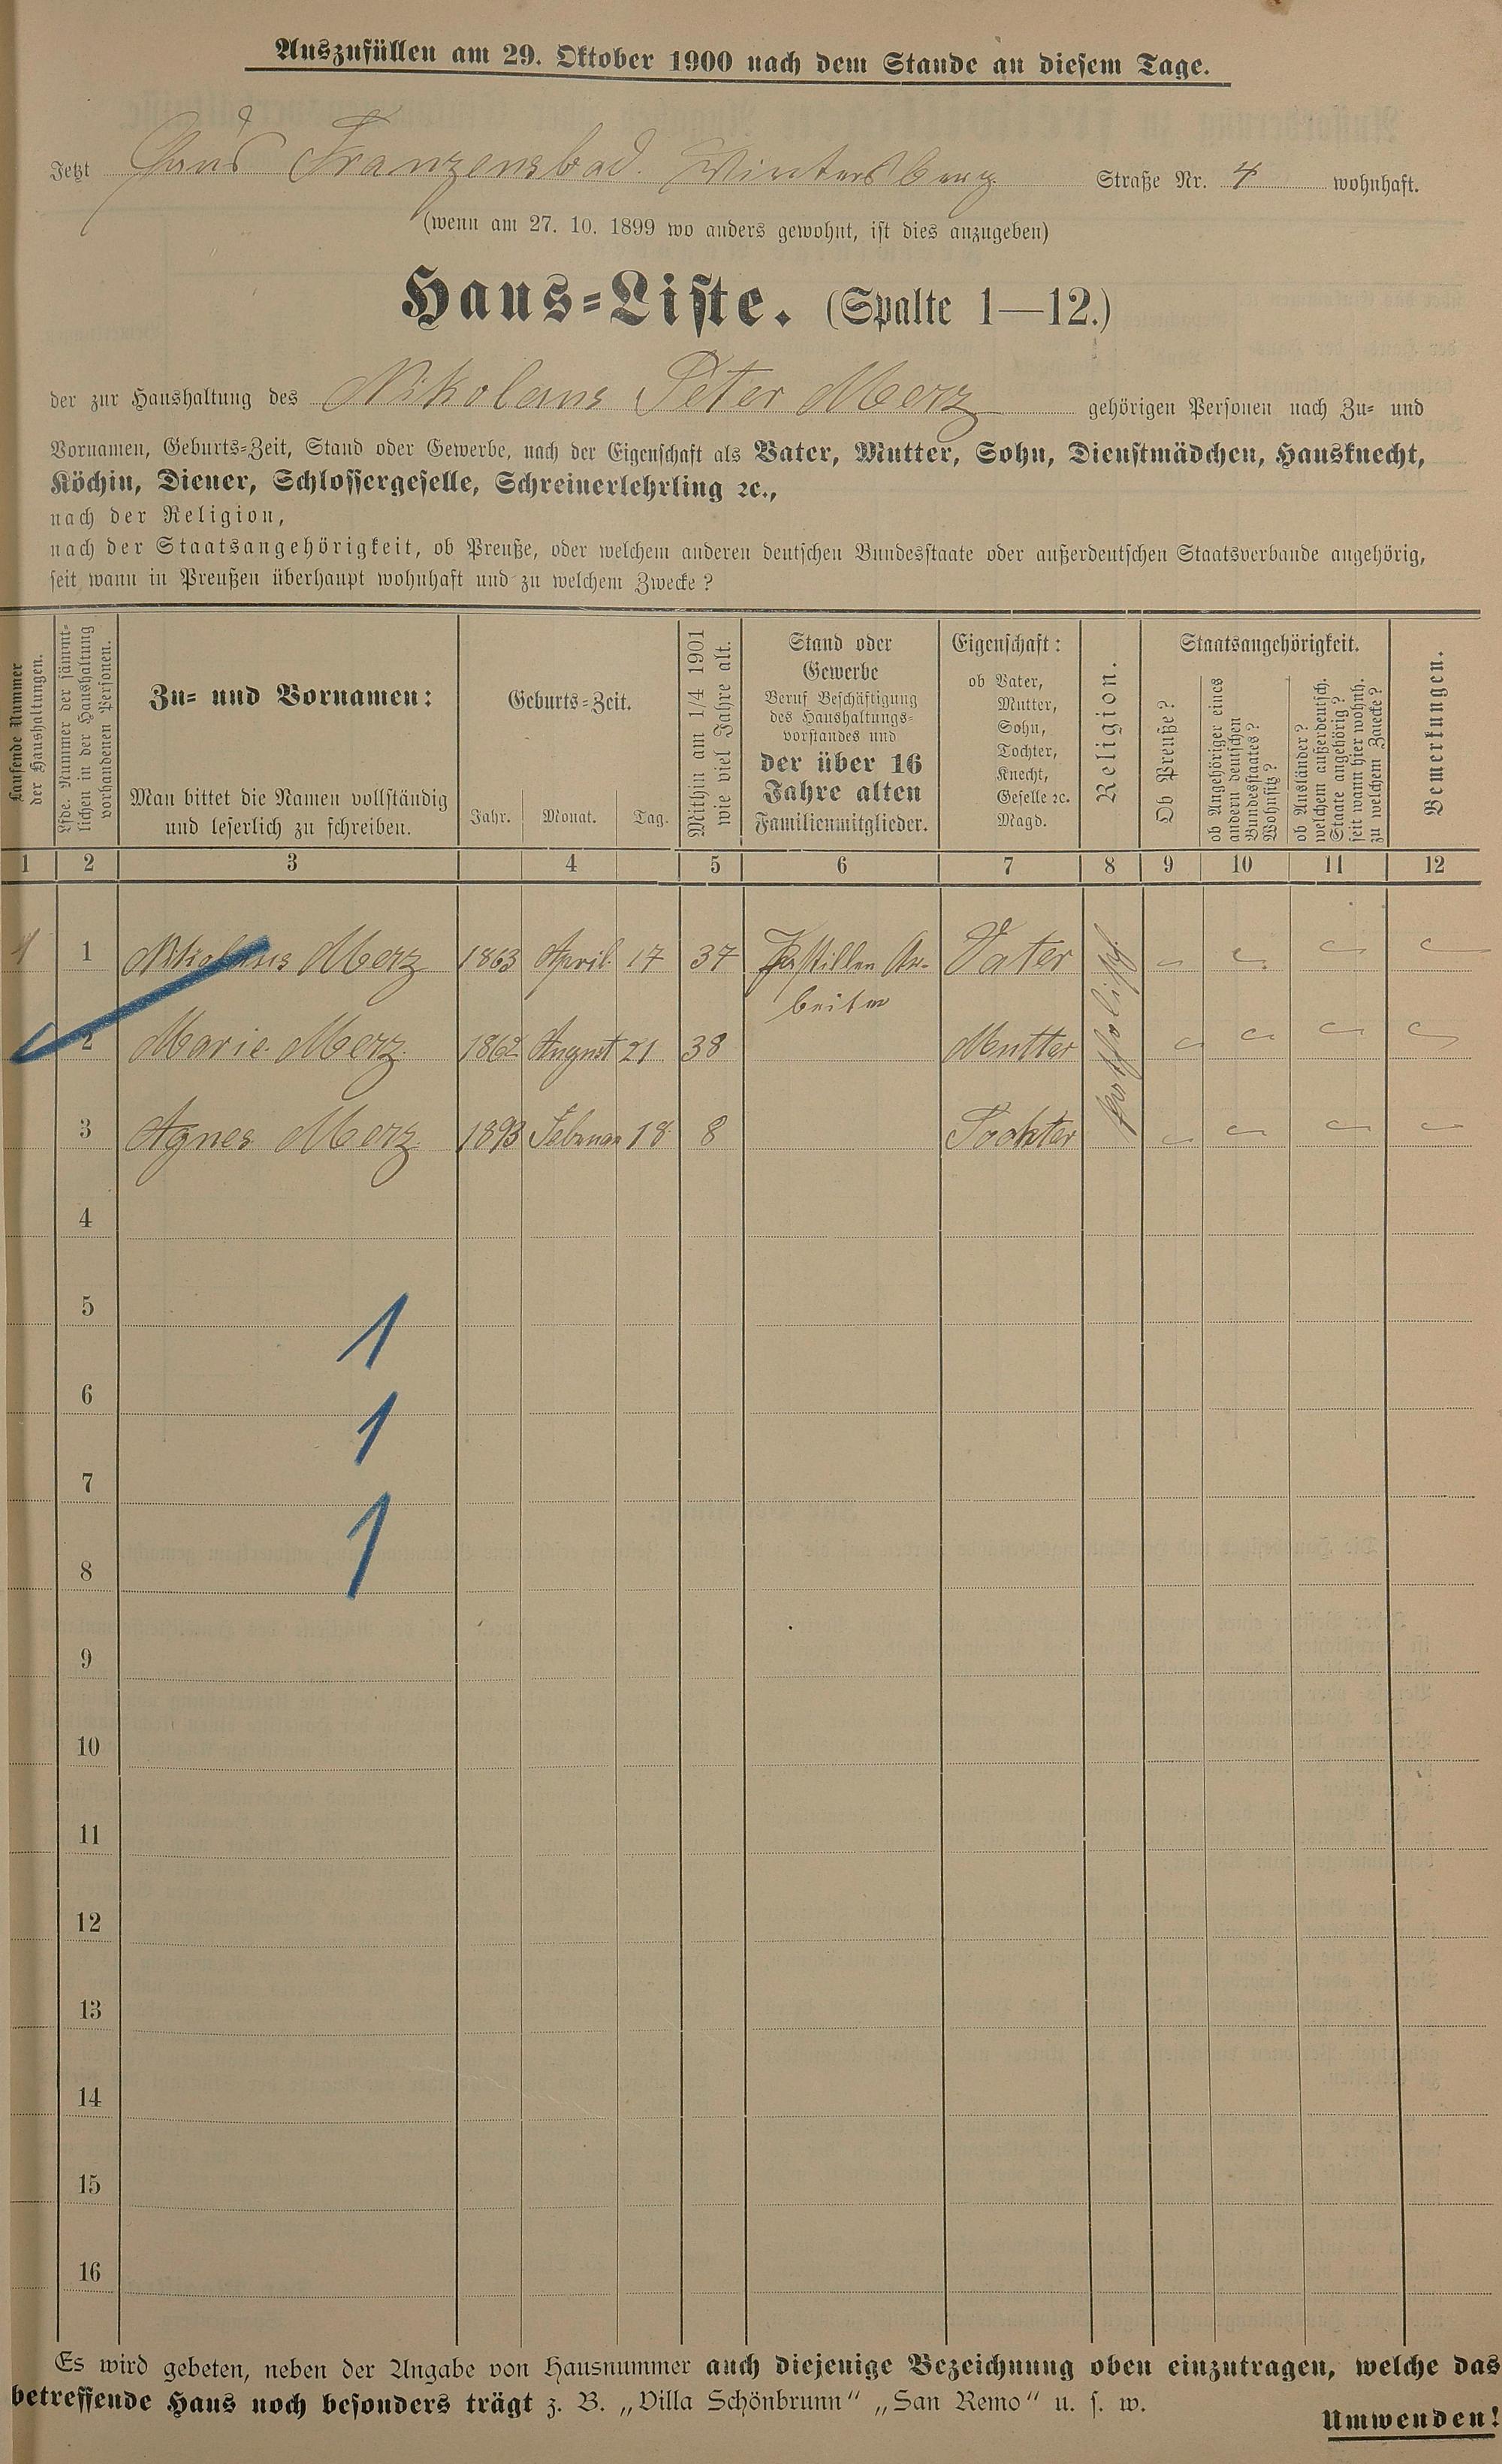 Auszufüllen am 29. Oktober 1900 nach dem Stande an diesem Tage.
Jetzt Haus Franzensbad. Wintersberg Straße Nr. 4 wohnhaft.
(wenn am 27. 10. 1899 wo anders gewohnt, ist dies anzugeben)
Haus-Liste. (Spalte 1—12.)
der zur Haushaltung des Nikolaus Peter Merz gehörigen Personen nach Zu- und
Vornamen, Geburts-Zeit, Stand oder Gewerbe, nach der Eigenschaft als Vater, Mutter, Sohn, Dienstmädchen, Hausknecht,
Köchin, Diener, Schlossergeselle, Schreinerlehrling ꝛc.,
nach der Religion,
nach der Staatsangehörigkeit, ob Preuße, oder welchem anderen deutschen Bundesstaate oder außerdeutschen Staatsverbande angehörig,
seit wann in Preußen überhaupt wohnhaft und zu welchem Zwecke?
Laufende Nummer
der Haushaltungen.
Lfde. Nummer der sämmt-
lichen in der Haushaltung
vorhandenen Personen.
Zu- und Vornamen:
Man bittet die Namen vollständig
und leserlich zu schreiben.
Geburts-Zeit.
Jahr. Monat. Tag.
Mithin am 1/4 1901
wie viel Jahre alt.
Stand oder
Gewerbe
Beruf Beschäftigung
des Haushaltungs-
vorstandes und
der über 16
Jahre alten
Familienmitglieder.
Eigenschaft:
ob Vater,
Mutter,
Sohn,
Tochter,
Knecht,
Geselle ꝛc.
Magd.
Religion.
Staatsangehörigkeit.
Ob Preuße?
ob Angehöriger eines
andern deutschen
Bundesstaates?
Wohnsitz?
ob Ausländer?
welchem außerdeutsch.
Staate angehörig?
seit wann hier wohnh.
zu welchem Zwecke?
Bemerkungen.
1 2 3 4 5 6 7 8 9 10 11 12
1 1 Nikolaus Merz 1863 April 17 37 Pastillen Ar- Vater katholisch
beiter
2 Marie Merz 1862 August 21 38 Mutter
3 Agnes Merz 1893 Februar 18 8 Tochter
4
5
1
6
1
7
1
8
9
10
11
12
13
14
15
16
Es wird gebeten, neben der Angabe von Hausnummer auch diejenige Bezeichnung oben einzutragen, welche das
betreffende Haus noch besonders trägt z. B. „Villa Schönbrunn“ „San Remo“ u. s. w.
Umwenden!